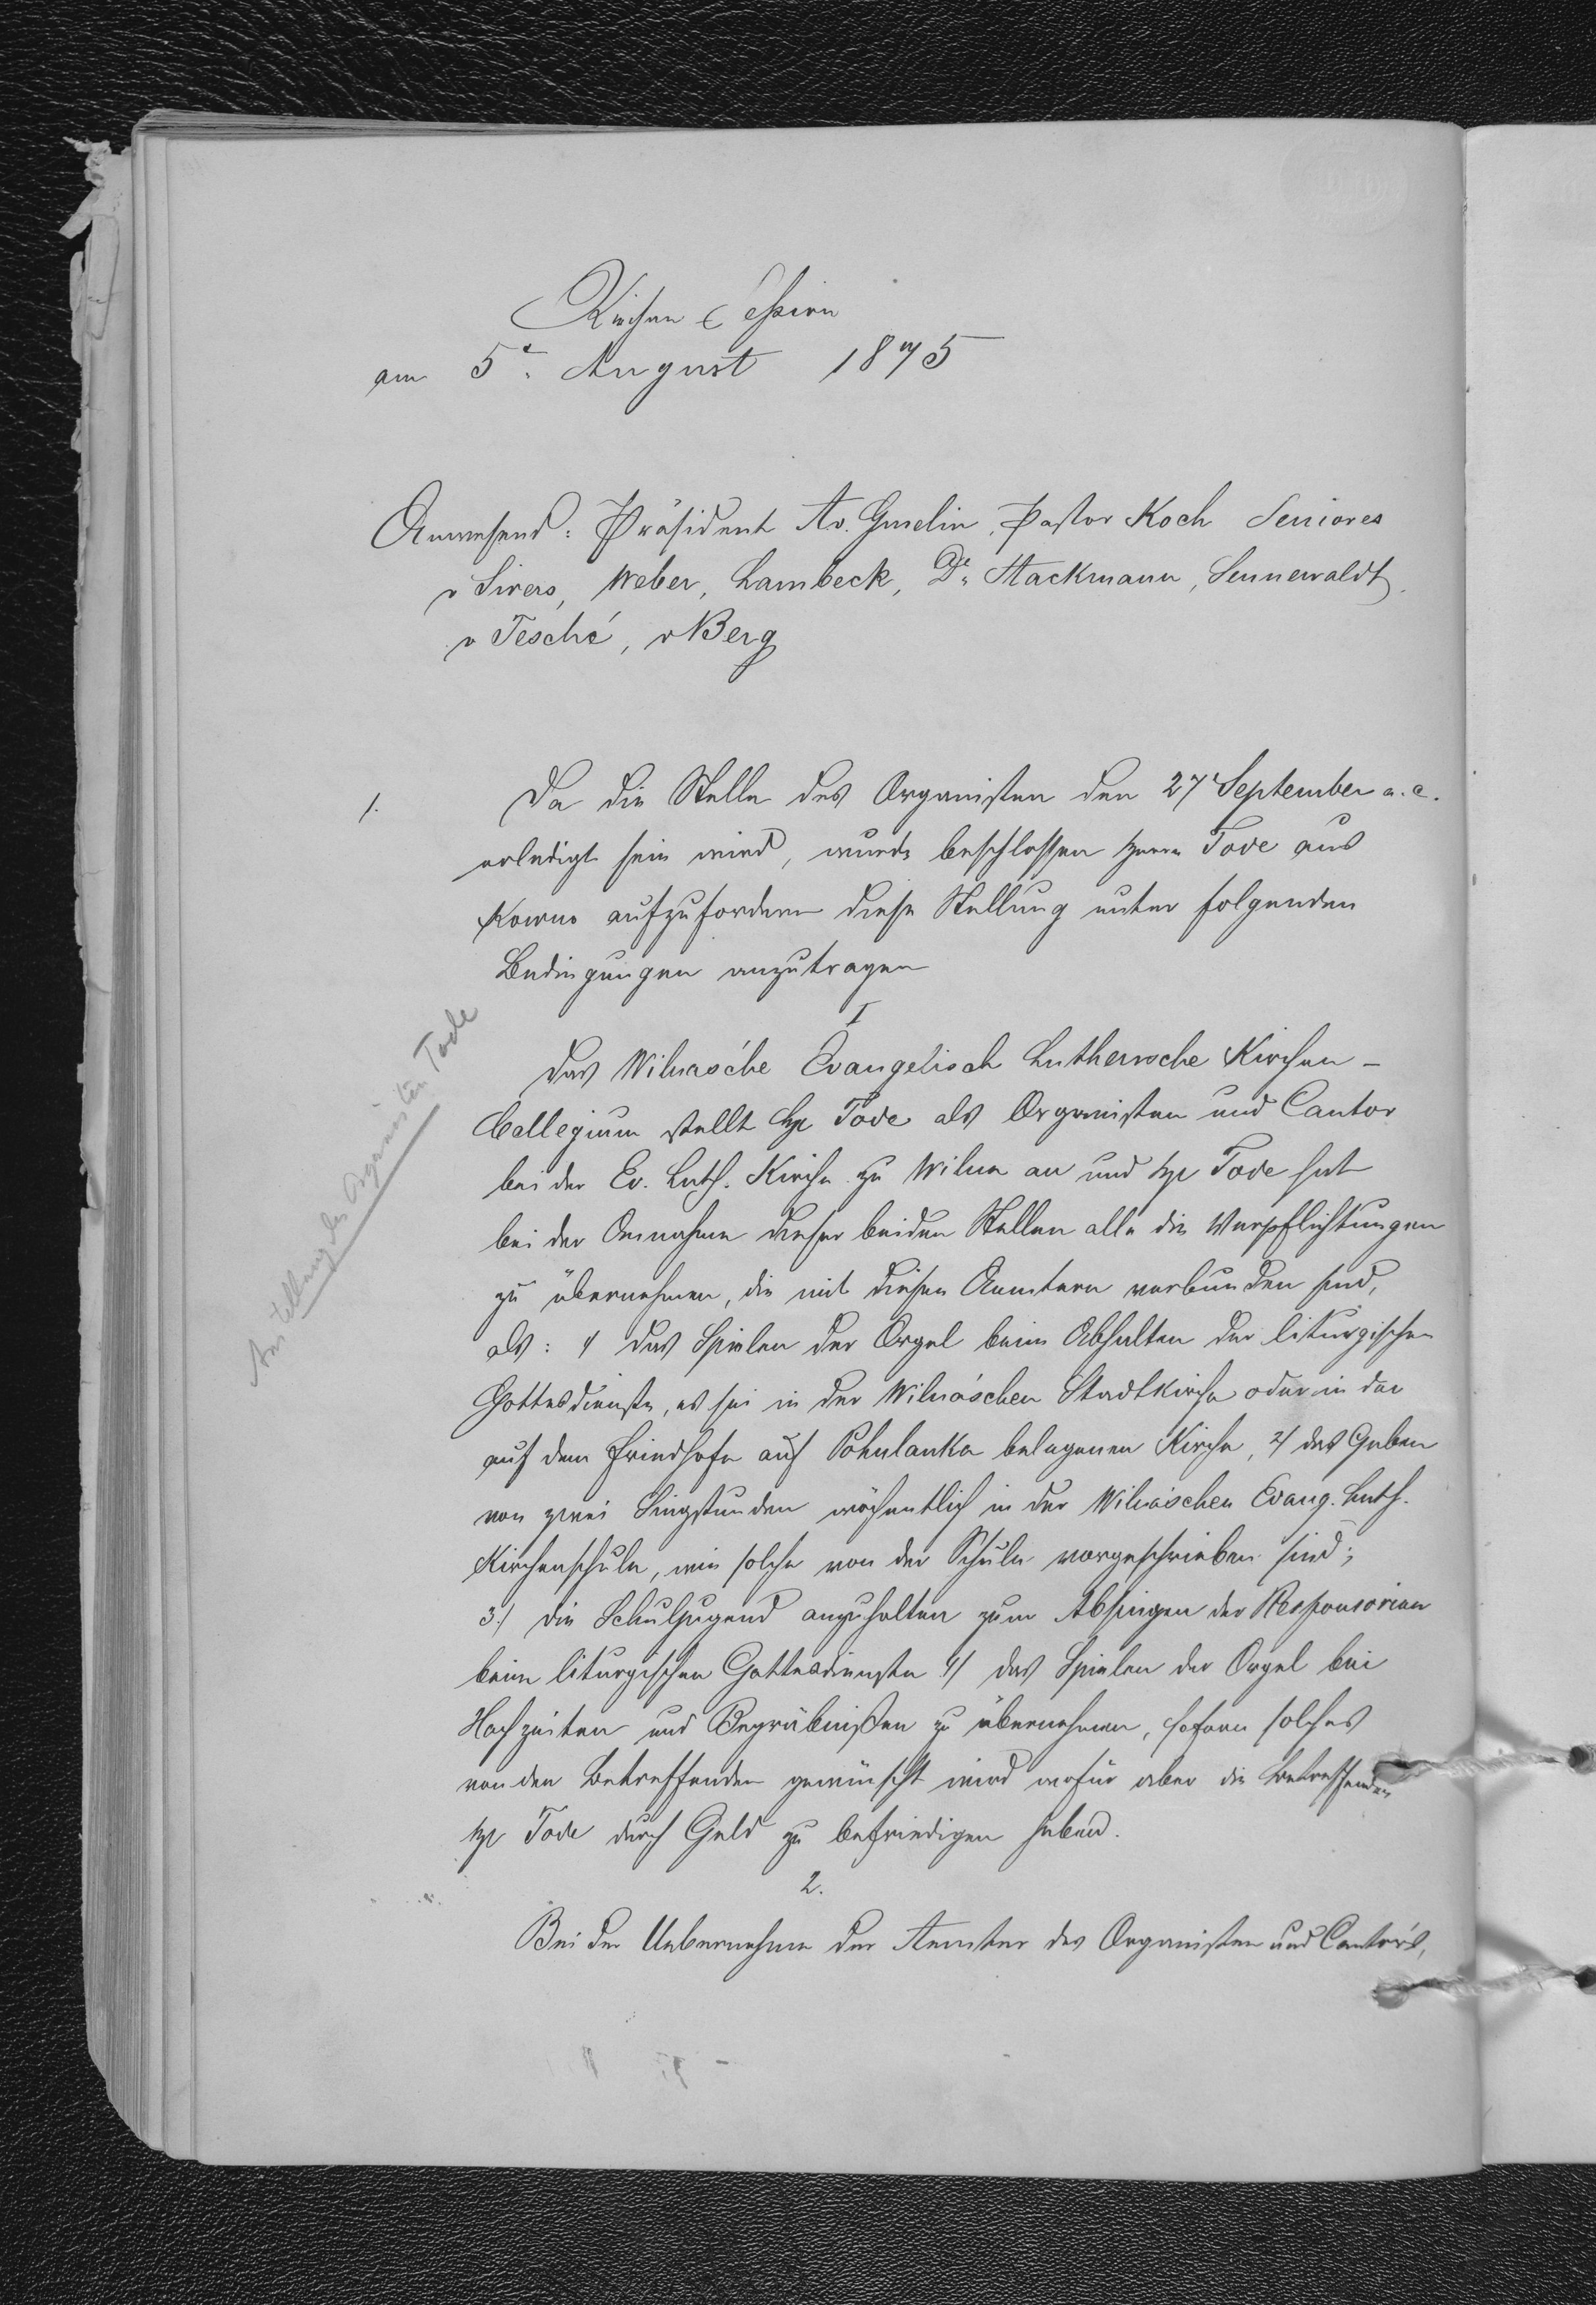 Kirchen Session
am 5t. August 1875
Anwesend: Präsident Av. Gmelin, Pastor Koch Seniores
v Sivers, Weber, Lambeck, Dr. Stackmann, Sennewaldt,
v Tesché, v Berg
1. Da die Stelle des Organisten den 27 September a. c.
erledigt sein wird, wurde beschlossen Herrn Tode aus
Kowno aufzufordern diese Stellung unter folgenden
Bedingungen anzutragen
I
Das Wilnasche Evangelisch Lutherische Kirchen-
Collegium stellt Hr Tode als Organisten und Cantor
bei der Ev. Luth. Kirche zu Wilna an und Hr Tode hat
bei der Annahme dieser beiden Stellen alle die Verpflichtungen
zu übernehmen, die mit diesen Aemtern verbunden sind,
als: 1/ das Spielen der Orgel beim Abhalten der liturgischen
Gottesdienste, es sei in der Wilna'schen Stadtkirche oder in der
auf dem Friedhofe auf Pohulanka belegenen Kirche, 2/ das Geben
von zwei Singstunden wöchentlich in der Wilna'schen Evang. Luth.
Kirchenschule, wie solche von der Schule vorgeschrieben sind;
3/ die Schuljugend anzuhalten zum Absingen der Responsorien
beim liturgischen Gottesdienste 4/ das Spielen der Orgel bei
Hochzeiten und Begräbnißen zu übernehmen, sofern solches
von den Betreffenden gewünscht wird wofür aber die Betreffenden
Hr Tode durch Geld zu befriedigen haben.
2.
Bei der Uebernahme der Aemter des Organisten und Cantor's,
Anstellung des Organisten Tode